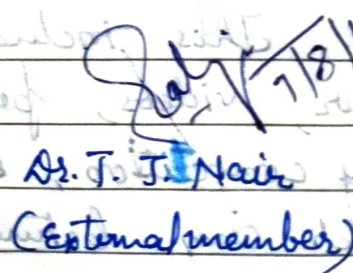 7/8/
Dr. T. J. Nair
(External member)